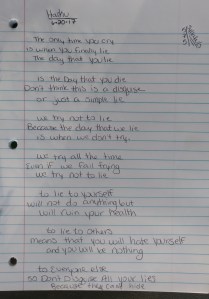 Haiku
6-20-17
The only time you cry
is when you finally lie
The day that you lie
is the Day that you die
Don't think this is a disguise
or just a simple lie
we try not to lie
Because the day that we lie
is when we don't try.
we try all the time
Even if we fail trying
we try not to lie
to lie to yourself
will not do anything but
will ruin your health
to lie to others
means that you will hate yourself
and you will be nothing
to Everyone else
so Don't Disguise All your lies
Because they can't hide